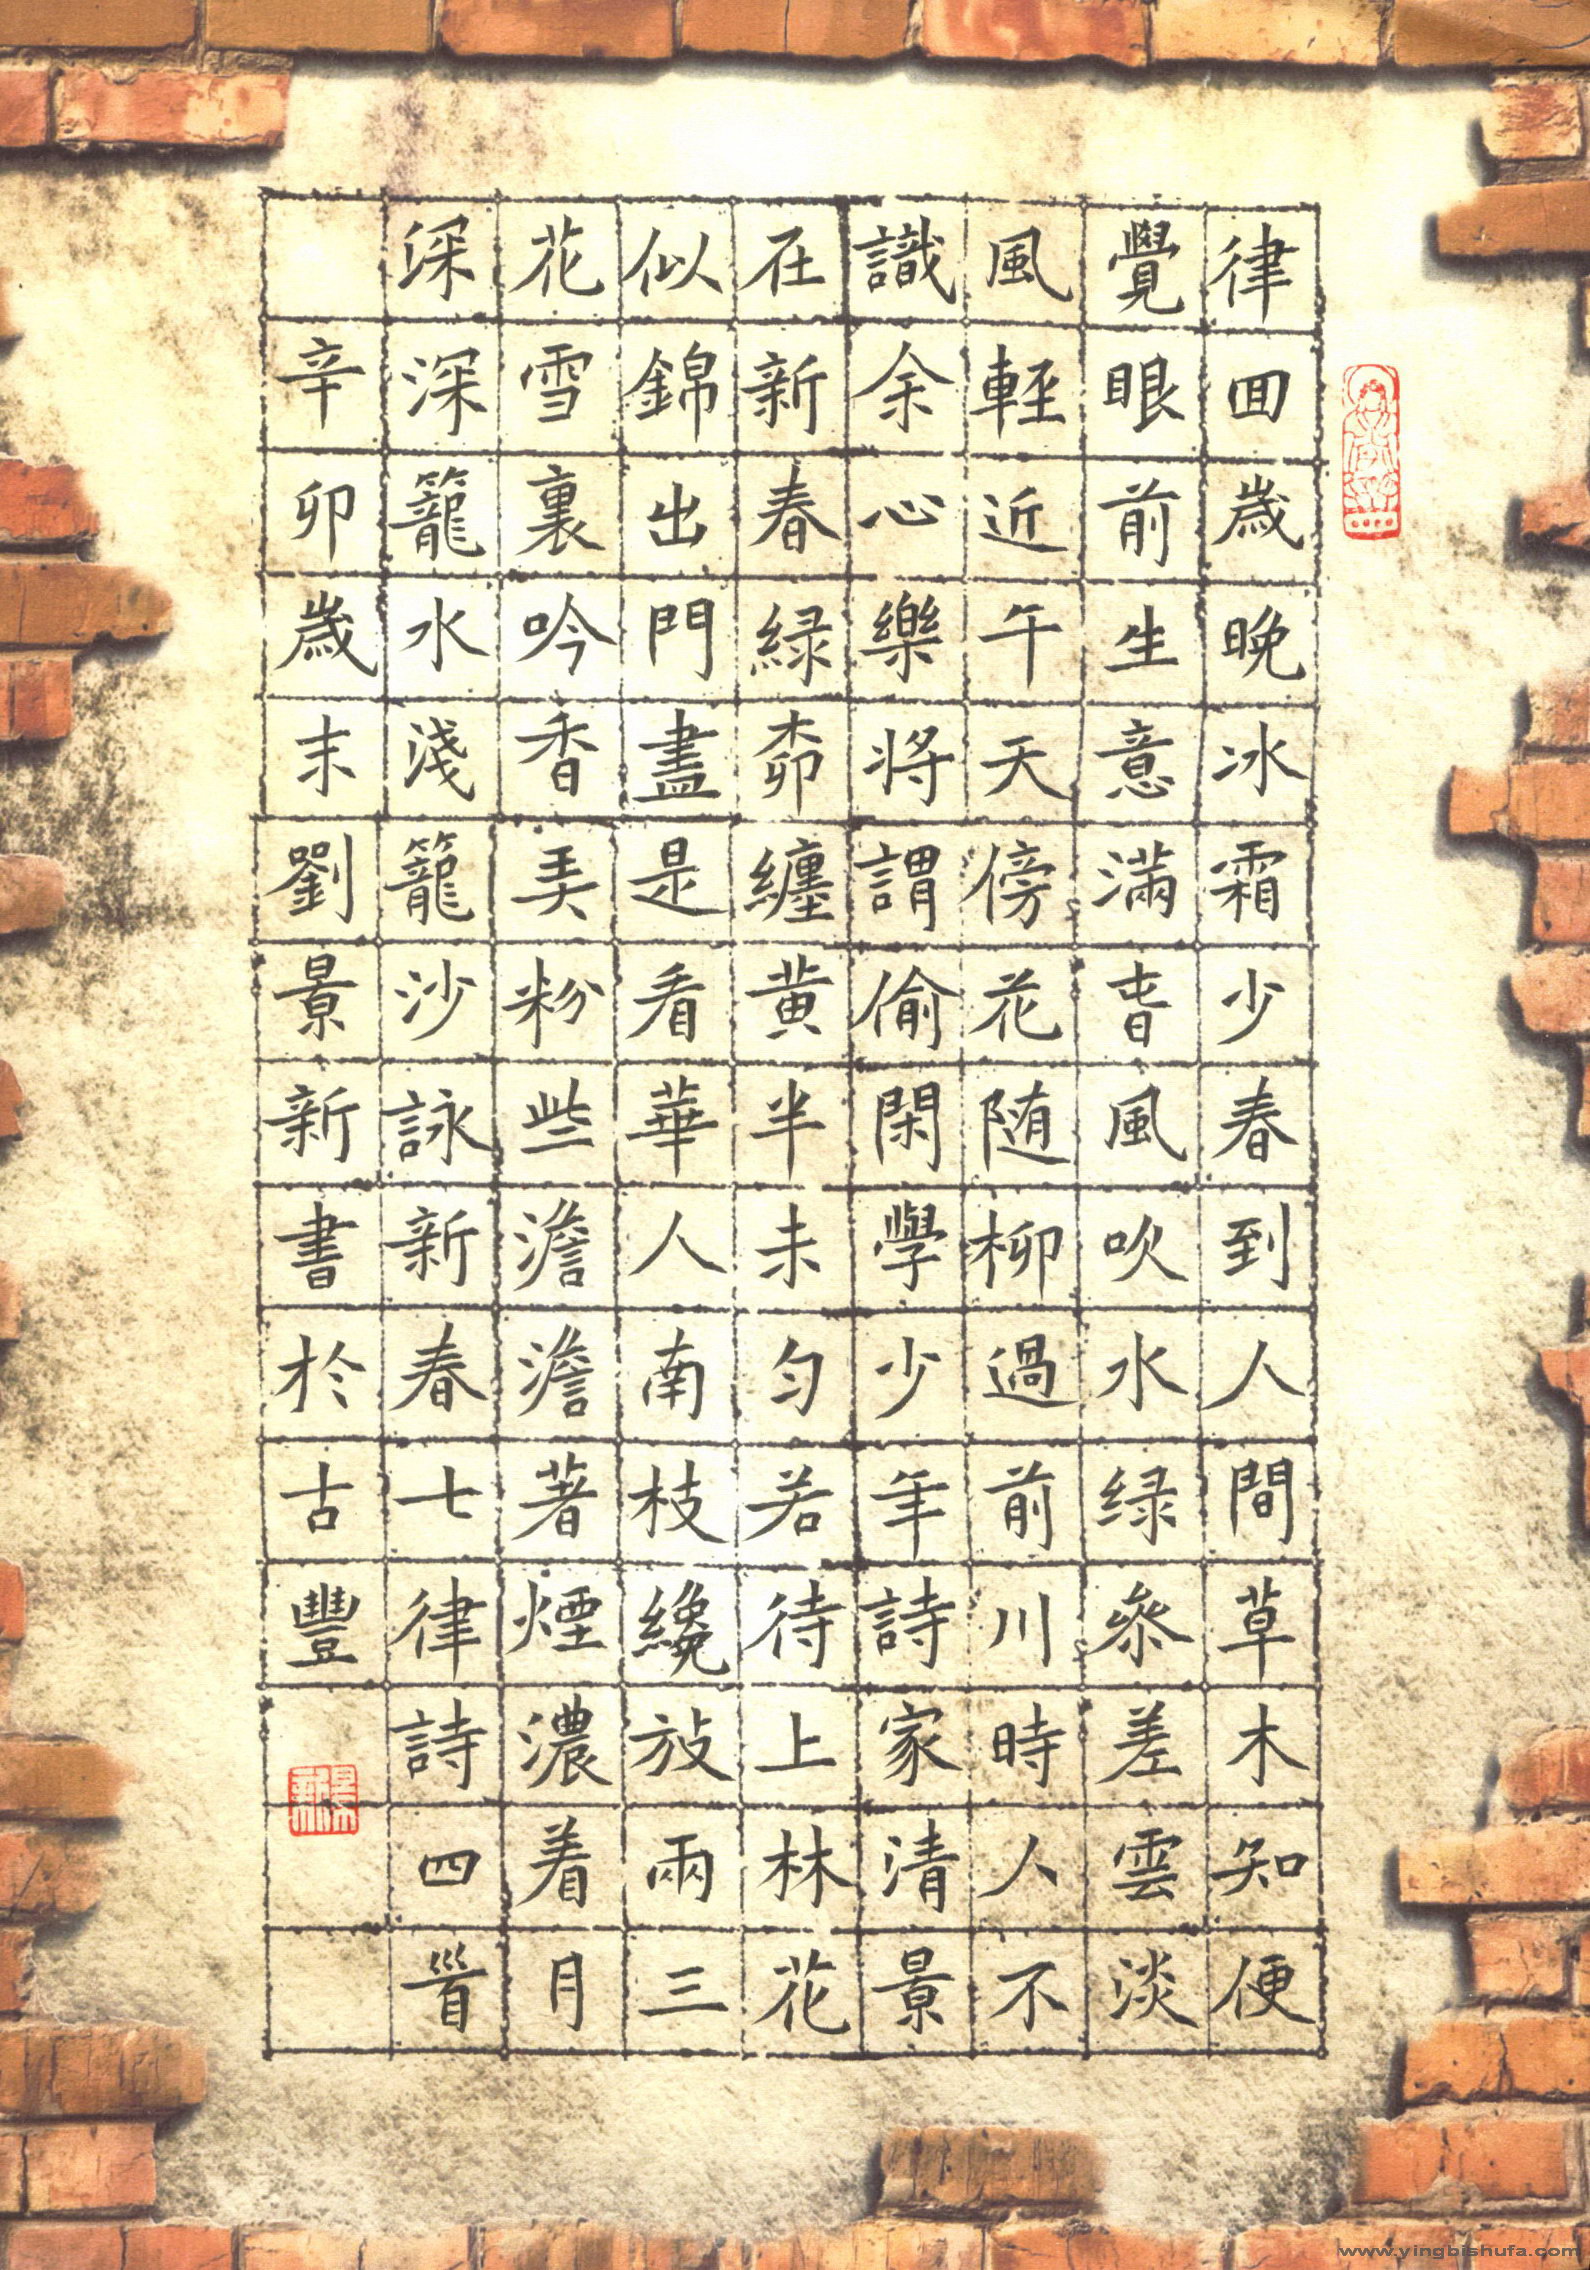 律囬歲晚冰霜少春到人間草木知便
覺眼前生意滿旾風吹水绿叅差雲淡
風輕近午天傍花随柳過前川時人不
識余心樂將謂偷閑學少年詩家清景
在新春緑桺纏黄半未匀若待上林花
似錦出門盡是看華人南枝纔放兩三
花雪裏吟香弄粉些澹澹著煙濃着月
深深籠水淺籠沙詠新春七律詩四首
辛卯歲末劉景新書於古豐
www.yingbishufa.com